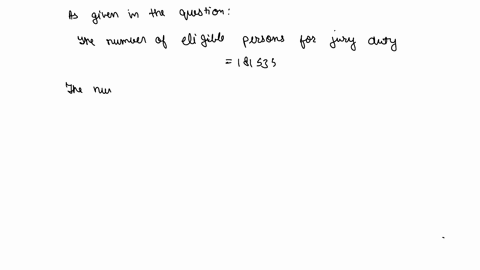 As given in the question:
The number of eligible persons for jury duty
= 181535
The nu